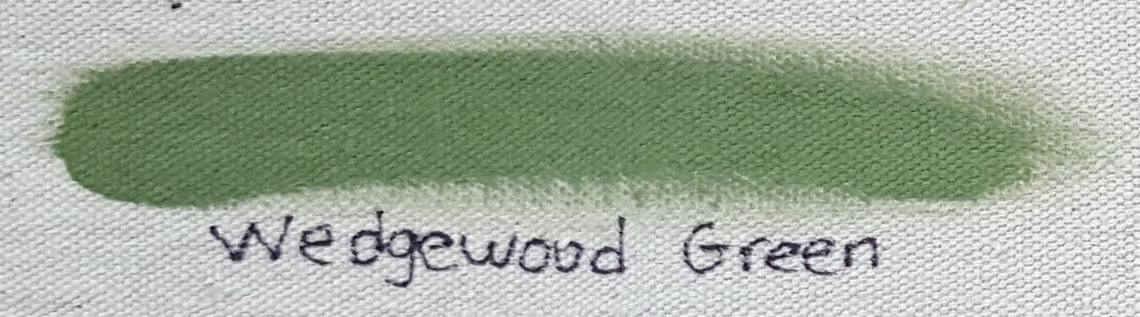 Wedgewood Green